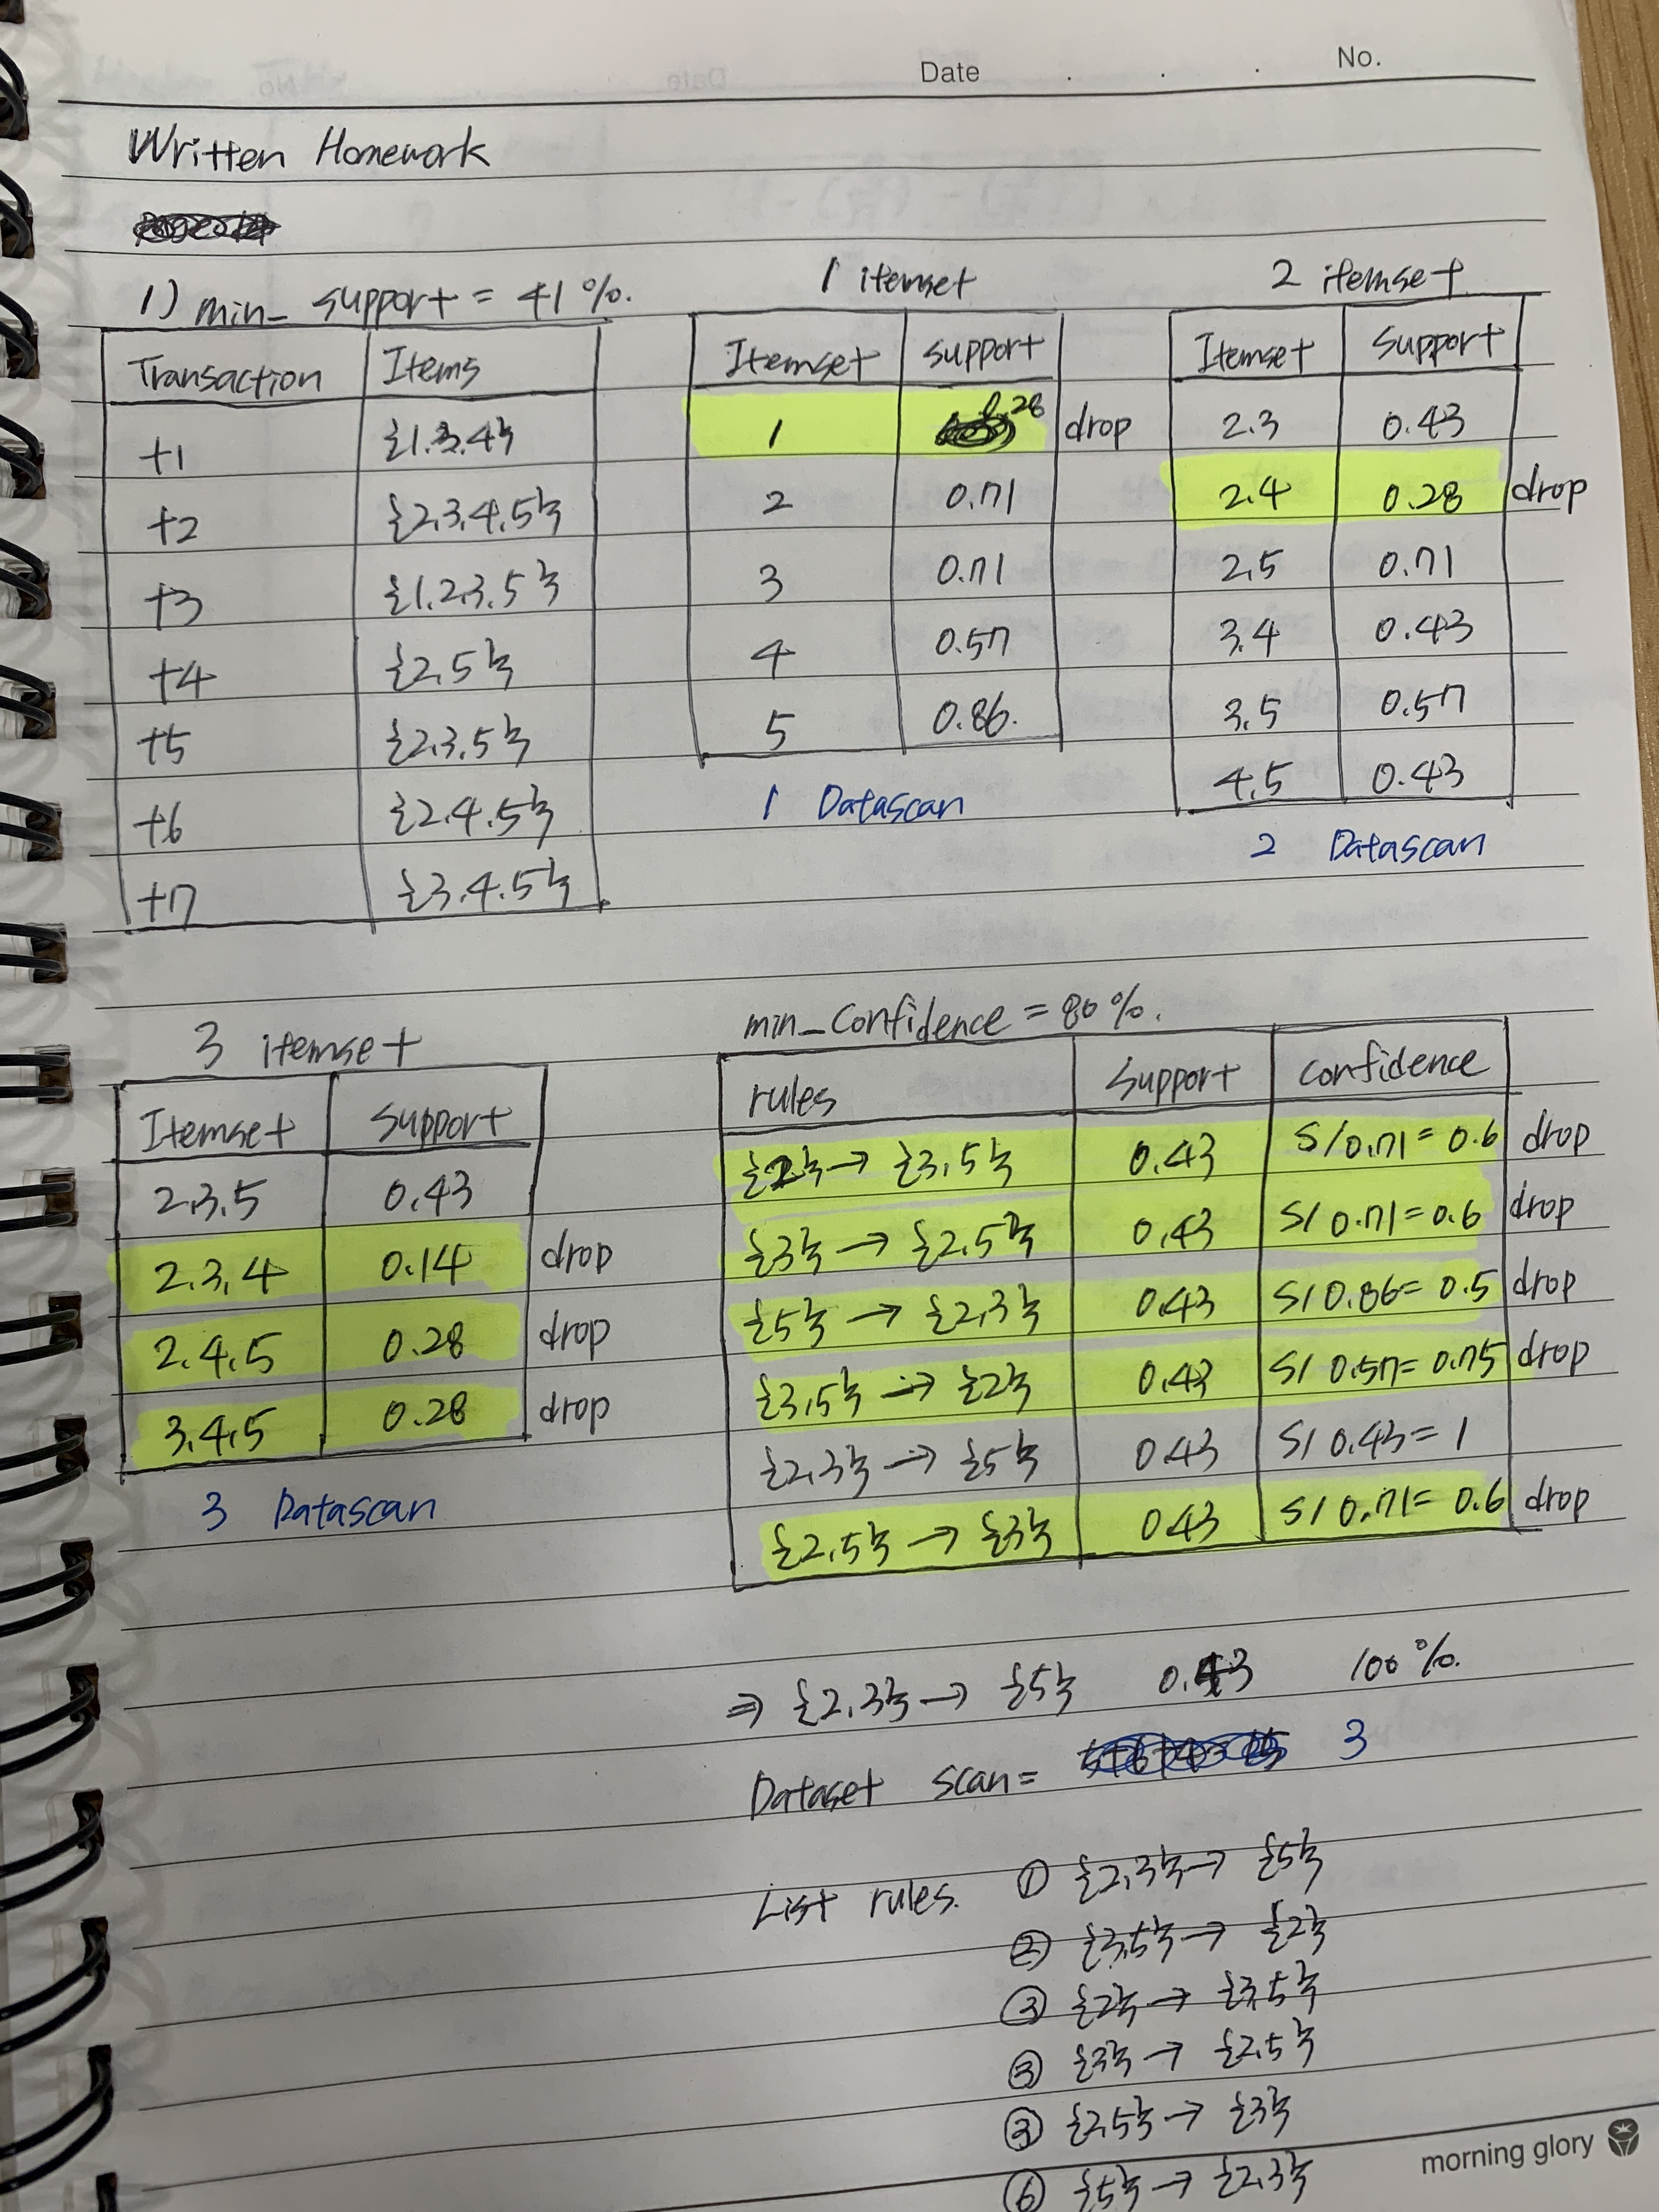 Date . . . No.
Written Homework
1) min_ support = 41 %.
Transaction Items
t1 {1.3.4}
t2 {2.3.4.5}
t3 {1.2.3.5}
t4 {2.5}
t5 {2.3.5}
t6 {2.4.5}
t7 {3.4.5}
1 itemset
Itemset support
1 0.28 drop
2 0.71
3 0.71
4 0.57
5 0.86.
1 Datascan
2 itemset
Itemset support
2.3 0.43
2.4 0.28 drop
2.5 0.71
3.4 0.43
3.5 0.57
4.5 0.43
2 Datascan
3 itemset
Itemset support
2.3.5 0.43
2.3.4 0.14 drop
2.4.5 0.28 drop
3.4.5 0.28 drop
3 Datascan
min_Confidence = 80 %.
rules support confidence
{2} → {3.5} 0.43 S/0.71 = 0.6 drop
{3} → {2.5} 0.43 S/0.71 = 0.6 drop
{5} → {2.3} 0.43 S/0.86 = 0.5 drop
{3.5} → {2} 0.43 S/0.57 = 0.75 drop
{2.3} → {5} 0.43 S/0.43 = 1
{2.5} → {3} 0.43 S/0.71 = 0.6 drop
⇒ {2.3} → {5} 0.43 100 %.
Dataset scan = 3
List rules. ① {2.3} → {5}
② {3.5} → {2}
③ {2} → {3.5}
③ {3} → {2.5}
③ {2.5} → {3}
⑥ {5} → {2.3}
morning glory